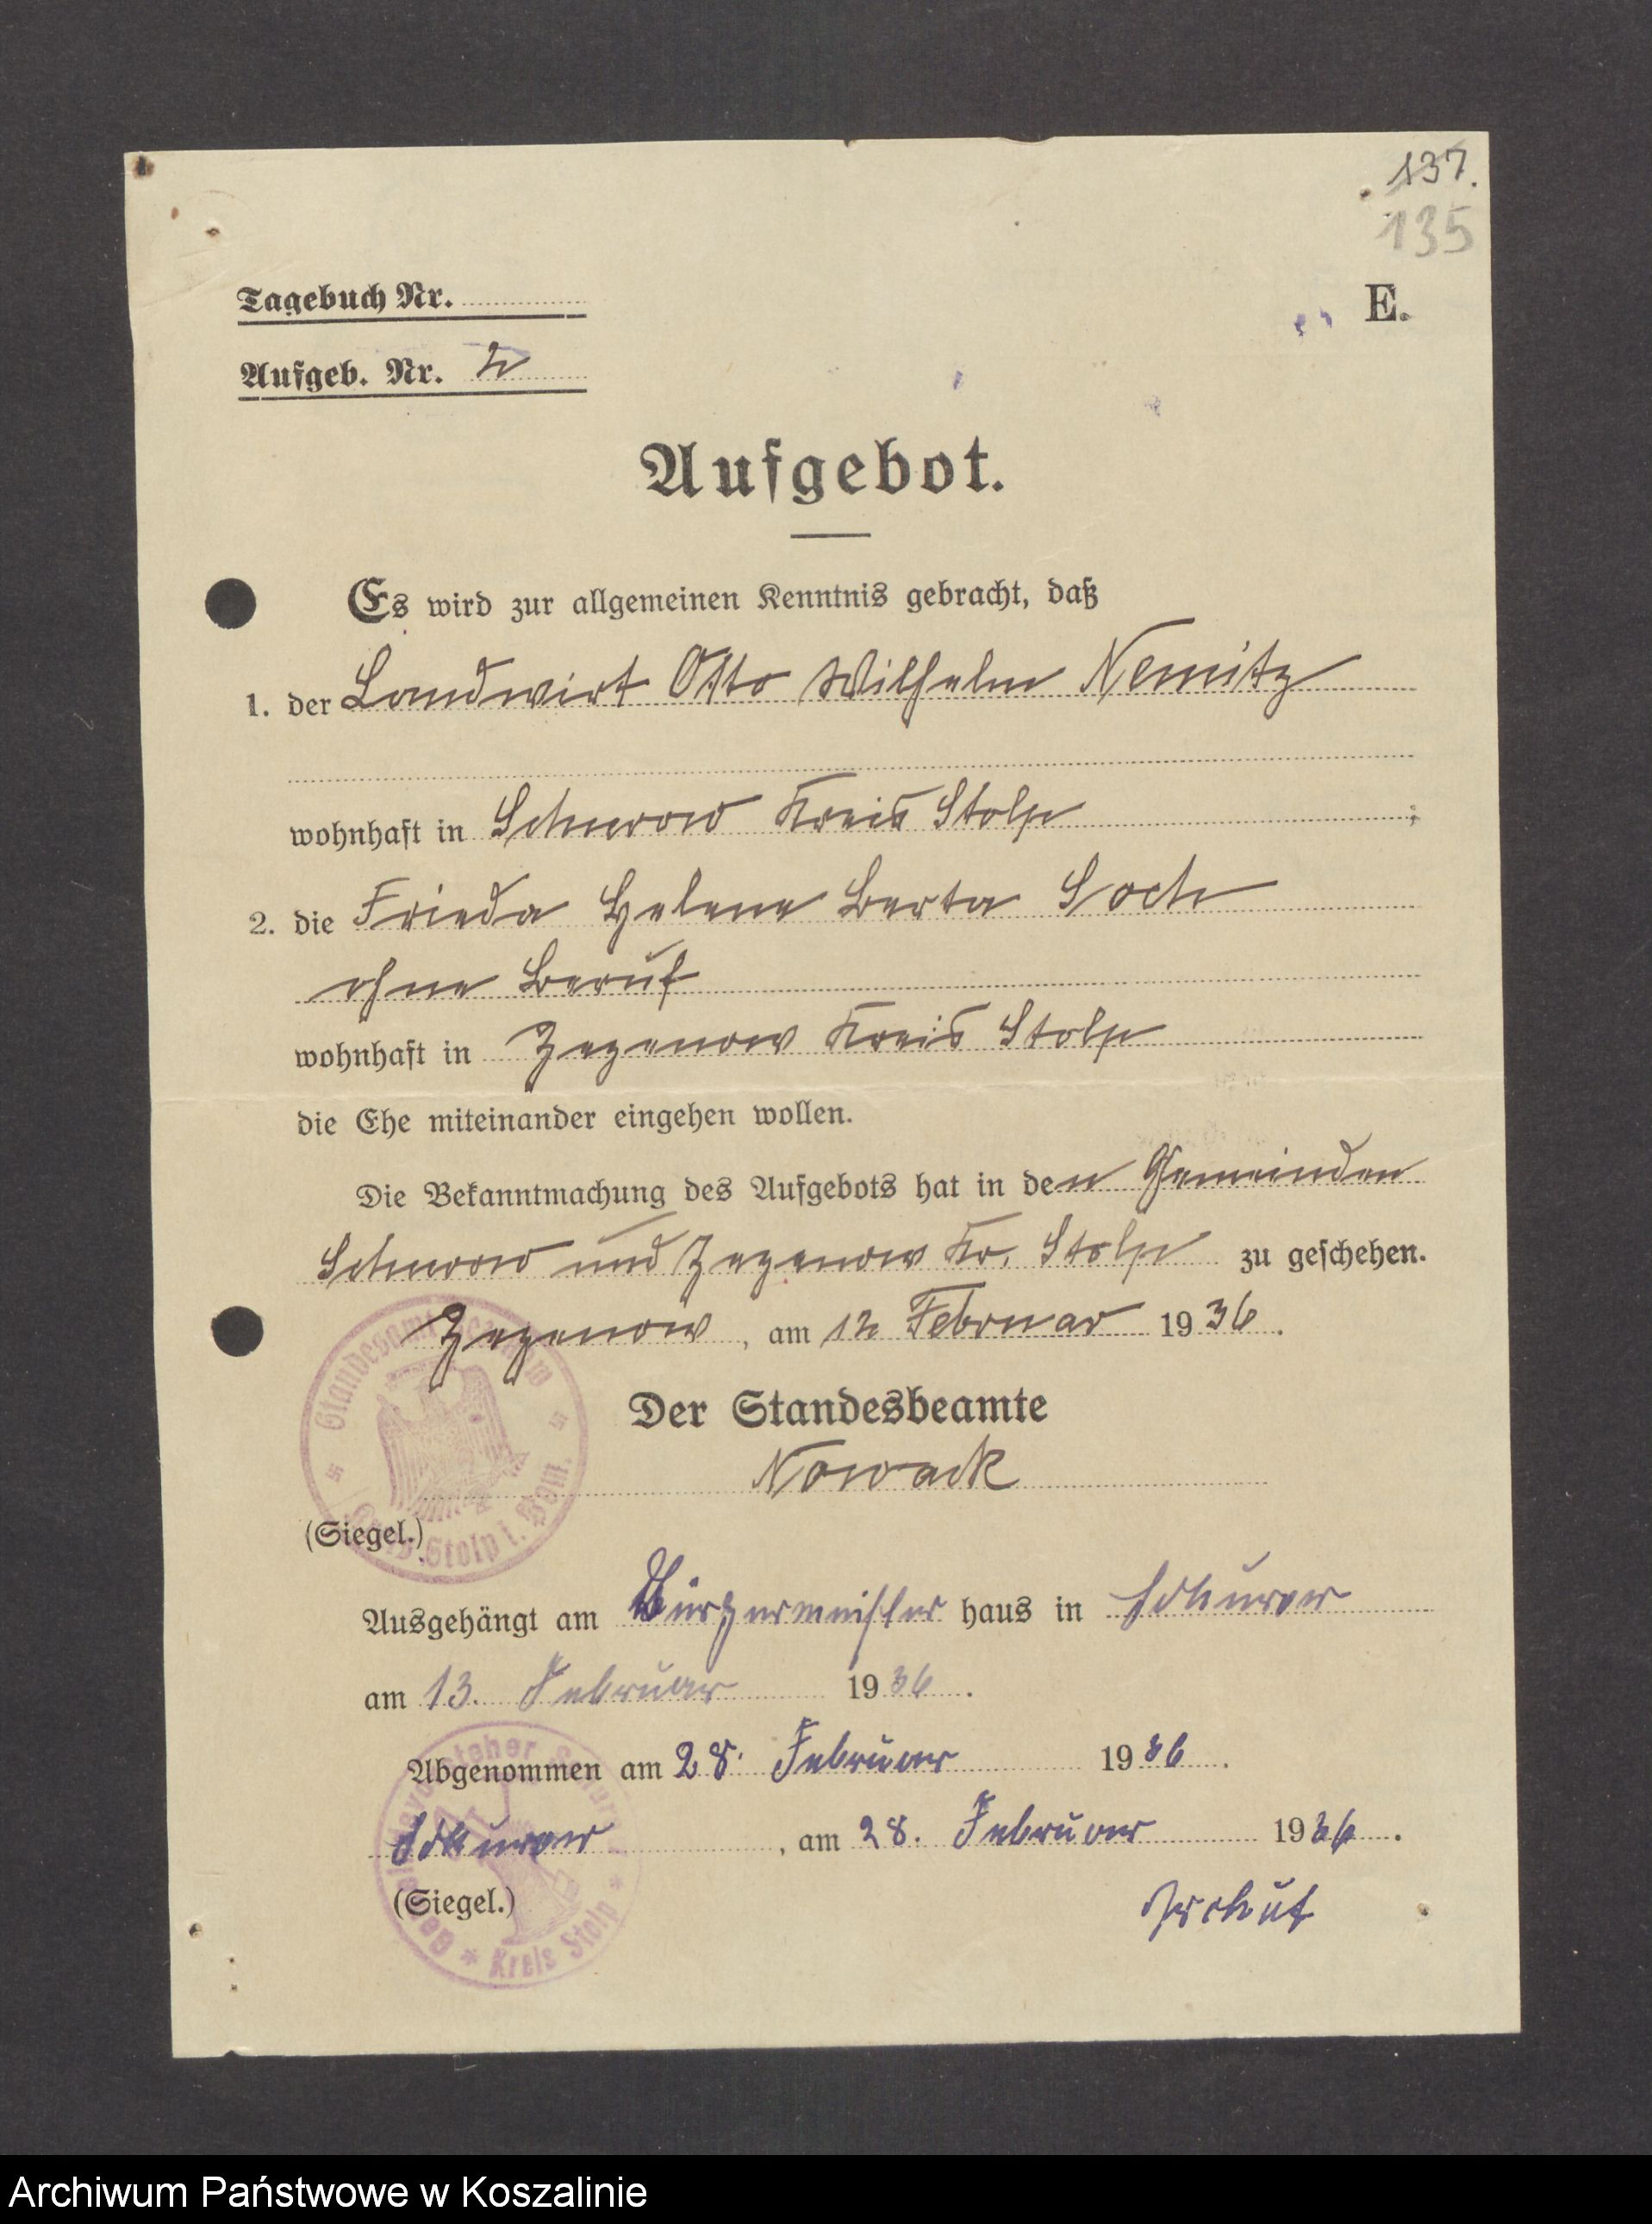 137.
135
Tagebuch Nr.
E.
Aufgeb. Nr. 2
Aufgebot.
Es wird zur allgemeinen Kenntnis gebracht, daß
1. der Landwirt Otto Wilhelm Nemitz
wohnhaft in Schurow Kreis Stolp ;
2. die Frieda Helene Berta Soch
ohne Beruf
wohnhaft in Zezenow Kreis Stolp
die Ehe miteinander eingehen wollen.
Die Bekanntmachung des Aufgebots hat in den Gemeinden
Schurow und Zezenow Kr. Stolp zu geschehen.
Zezenow, am 12 Februar 1936.
Standesamt Zezenow
Kreis Stolp i. Pom.
Der Standesbeamte
Nowack
(Siegel.)
Ausgehängt am Bürgermeister haus in Schurow
am 13. Februar 1936.
Abgenommen am 28. Februar 1936.
Schurow, am 28. Februar 1936.
(Siegel.)
Kreis Stolp
Archiwum Państwowe w Koszalinie